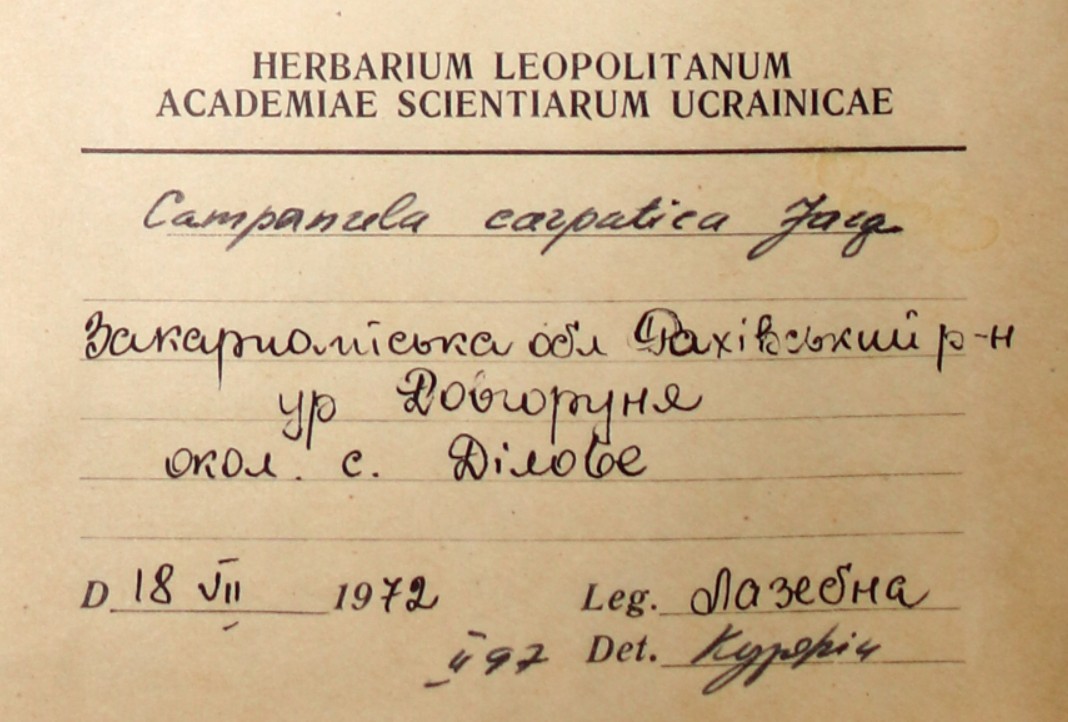 HERBARIUM LEOPOLITANUM
ACADEMIAE SCIENTIARUM UCRAINICAE
Campanula carpatica Jacq.
Закарпатська обл Рахівський р-н
ур Довгоруня
окол. с. Ділове
D 18 VII 1972 Leg. Лазебна
II 97 Det.